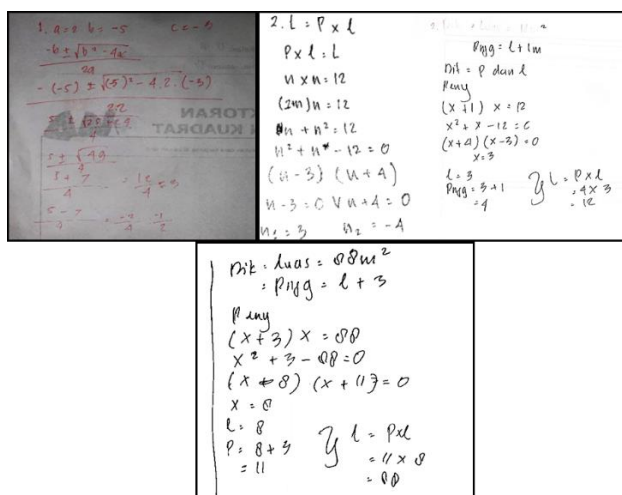 1. a=2 b=-5 c=-3
-b±√b²-4ac
2a
-(-5) ± √(-5)² - 4.2.(-3)
2.2
4
5 ± √49
4
5 + 7
4
= 12/4 = 3
5 - 7
4
= -2/4 = -1/2
TORAN
N KUADRAT
2. L = P x l
P x l = L
n x n = 12
(1m)n = 12
n + n² = 12
n² + n - 12 = 0
(n-3) (n+4)
n-3=0 V n+4=0
n₁ = 3 n₂ = -4
Pnjg = l + 1m
Dit = P dan l
Peny
(x+1) x = 12
x² + x - 12 = 0
(x+4) (x-3) = 0
x=3
l = 3
Pnjg = 3+1
= 4
L = Pxl
= 4 x 3
= 12
Dik = luas = 88m²
= Pnjg = l + 3
Peny
(x+3) x = 88
x² + 3 - 88 = 0
(x - 8) (x + 11) = 0
x = 8
l = 8
P = 8 + 3
= 11
L = Pxl
= 11 x 8
= 88